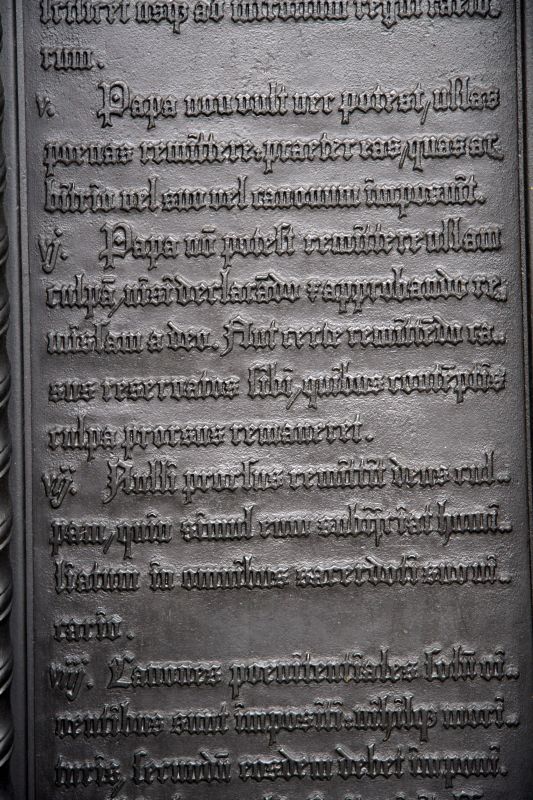 scilicet usqꝫ ad introitum regni caelo-
rum.
v. Papa non vult nec potest, ullas
poenas remittere. praeter eas, quas ar-
bitrio vel suo vel canonum imposuit.
vj. Papa nō potest remittere ullam
culpā, nisi declarādo & approbando re-
missam a deo. Aut certe remittēdo ca-
sus reservatos sibi, quibus contēptis
culpa prorsus remaneret.
vij. Nulli prorsus remittit deus cul-
pam, quin simul eum subijciat humi-
liatum in omnibus sacerdoti suo vi-
cario.
viij. Canones poenitentiales solū vi-
ventibus sunt impositi. nihilqꝫ mori-
turis, secundū eosdem debet imponi.